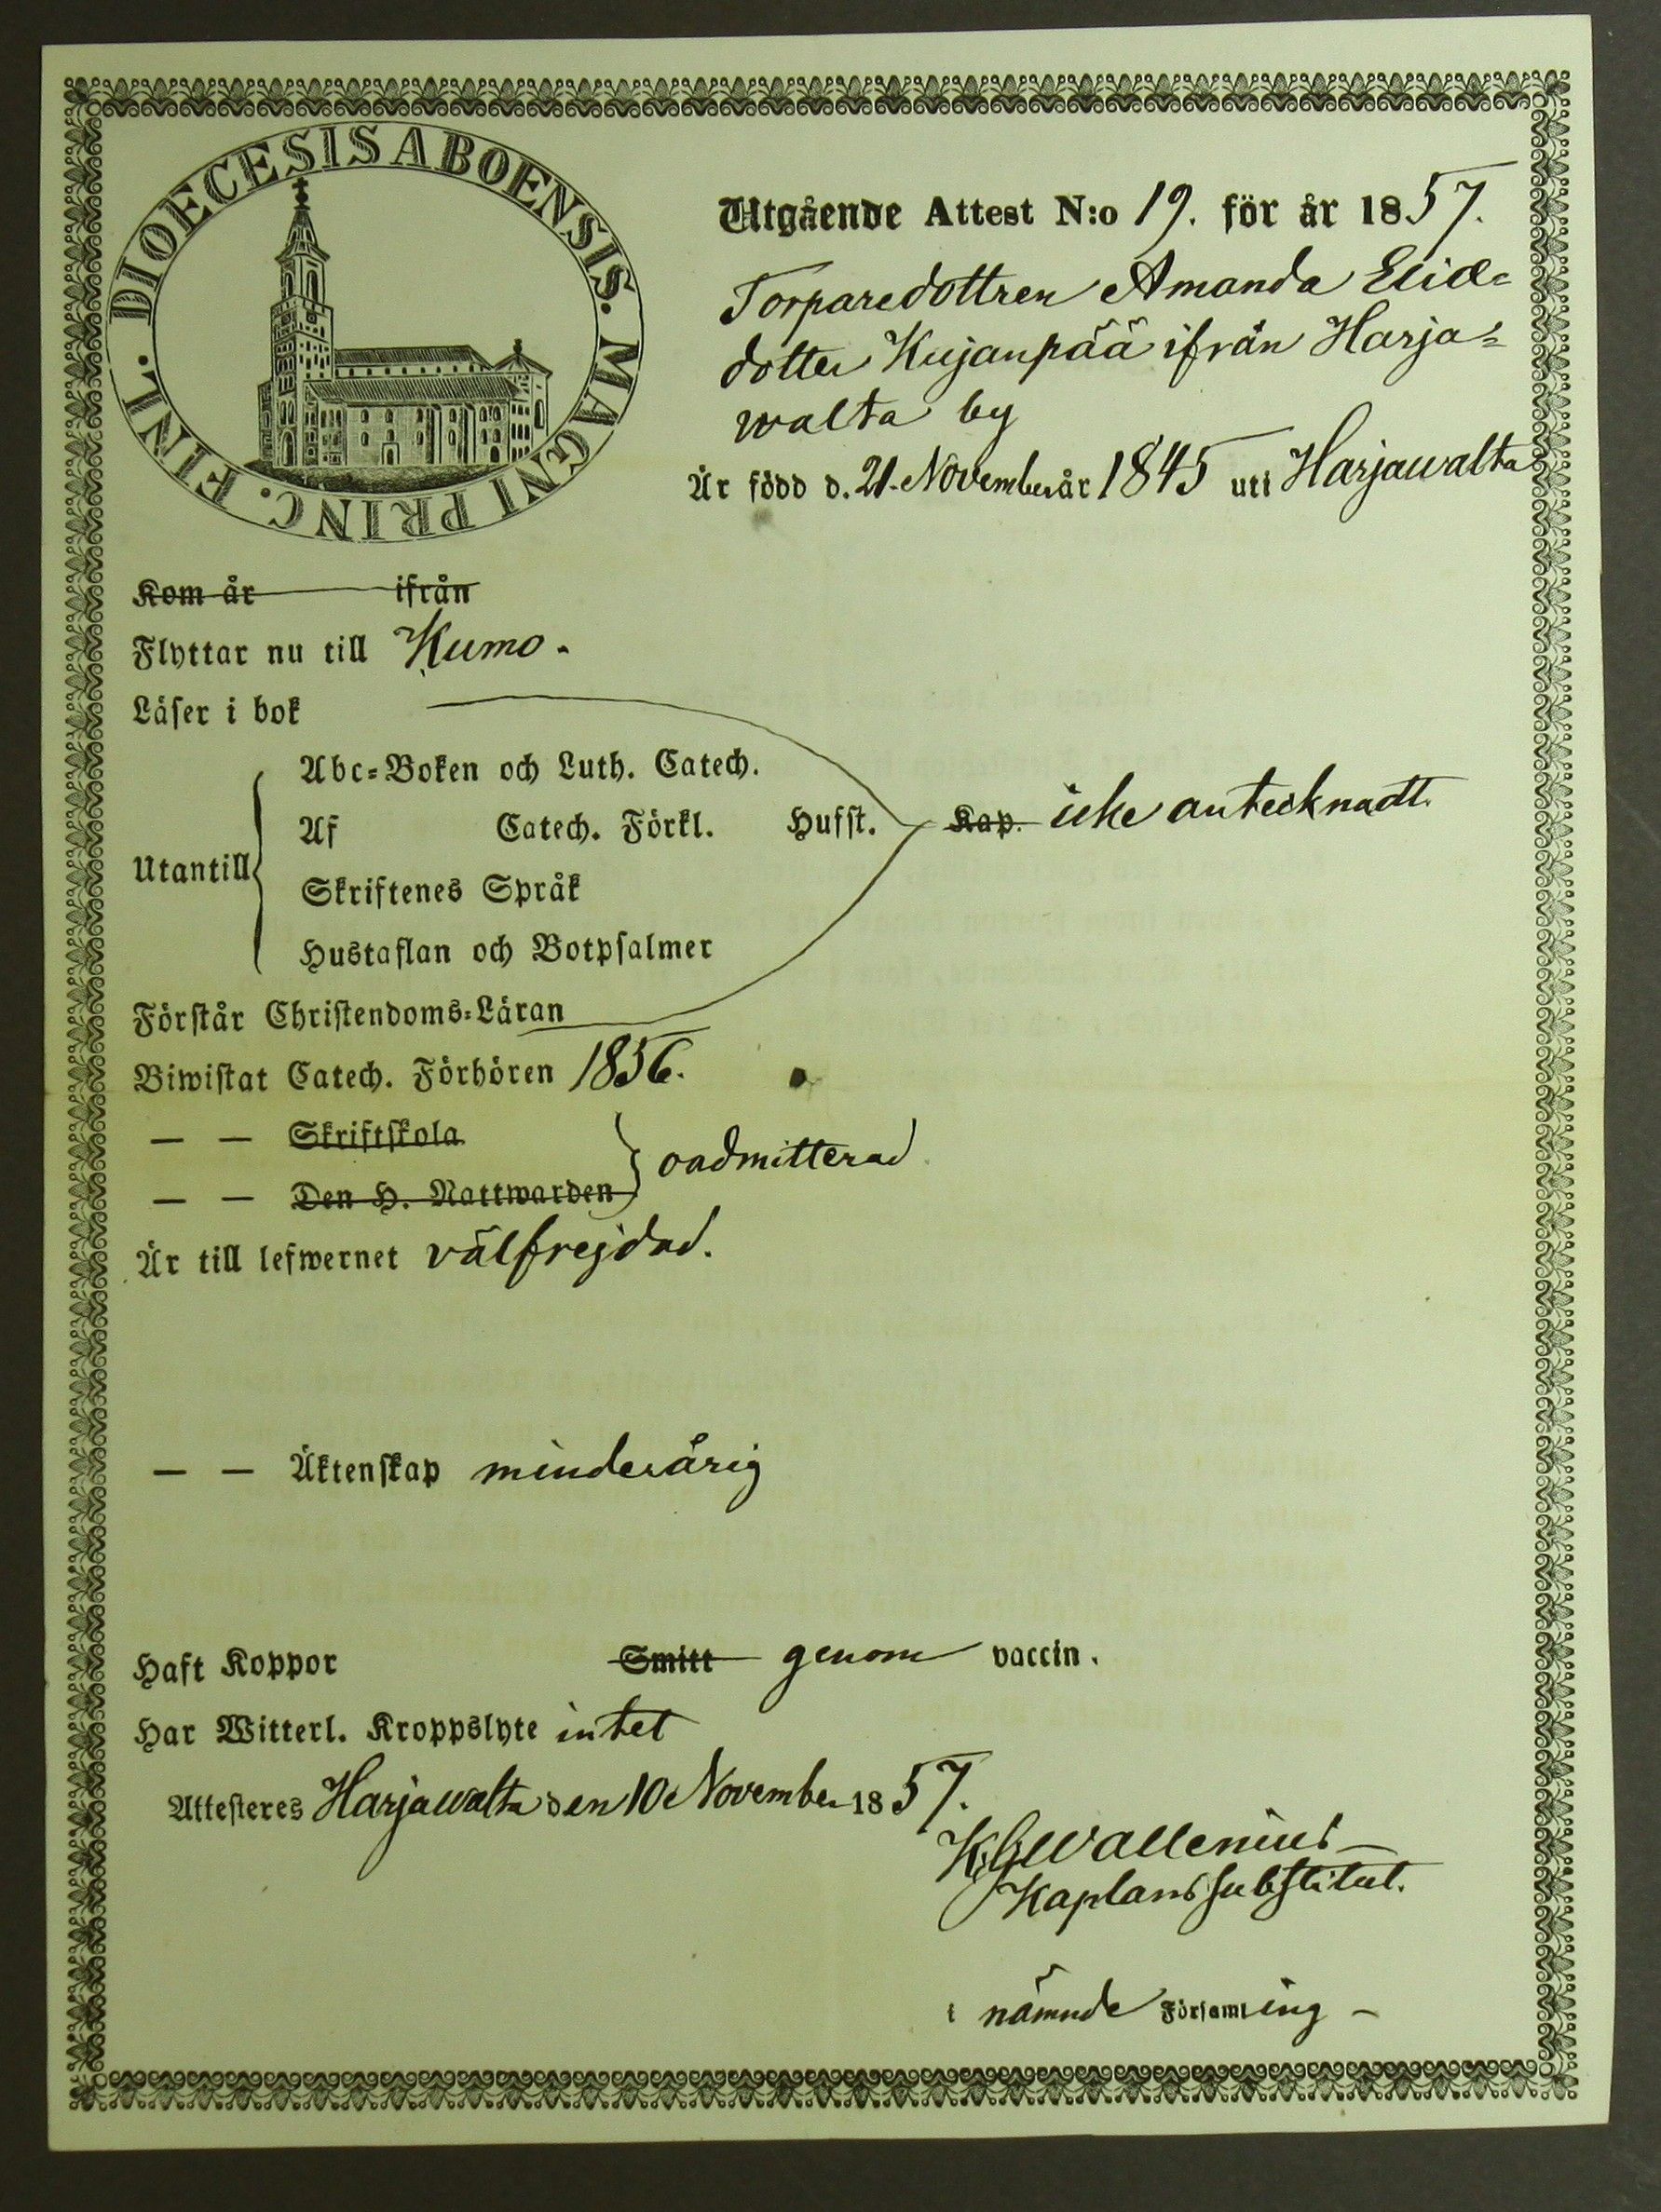 DIOECESIS ABOENSIS. MAGNI PRINC. FINL.
Utgående Attest N:o 19. för år 1857.
Torparedottren Amanda Elias=
dotter Kujanpää ifrån Harja=
walta by
Är född d. 21. November år 1845 uti Harjawalta
Kom år ifrån
Flyttar nu till Kumo.
Läser i bok
Abc=Boken och Luth. Catech.
Utantill Af Catech. Förkl. Hufst. Kap. icke antecknadt.
Skriftenes Språk
Hustaflan och Botpsalmer
Förstår Christendoms=Läran
Biwistat Catech. Förhören 1856.
— — Skriftskola
— — Den H. Nattwarden oadmitterad
Är till lefwernet välfrejdad.
— — Äktenskap minderårig
Haft Koppor Smitt genom vaccin.
Har Witterl. Kroppslyte intet
Attesteres Harjawalta den 10 November 1857.
K. G. Wallenius
Kaplans substitut.
i nämnde Församling